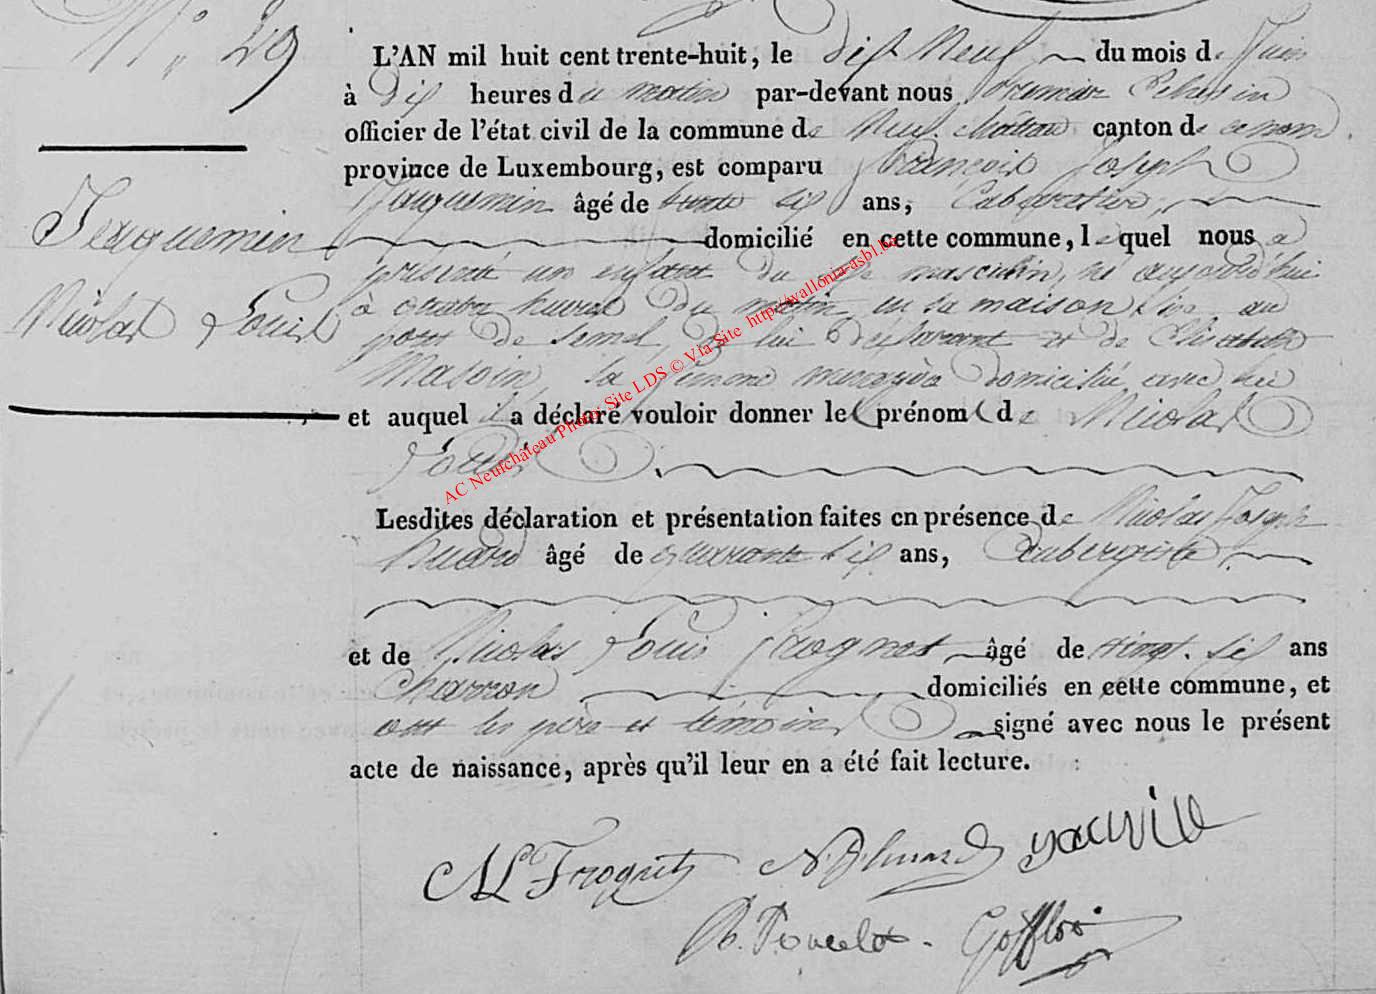 N° 29
L'AN mil huit cent trente-huit, le dix Neuf du mois de Juin
à dix heures du matin par-devant nous Premier Echevin
officier de l'état civil de la commune de Neufchâteau canton de ce nom.
province de Luxembourg, est comparu François Joseph
Jacquemin âgé de trente six ans, Cabaretier,
Jacquemin
domicilié en cette commune, lequel nous a
présenté un enfant du sexe masculin, né aujourd'hui
Nicolas Louis
à quatre heures du matin en sa maison sise au
pont de , de lui déclarant et de Elisabeth
Masoin, sa femme domiciliée avec lui
et auquel il a déclaré vouloir donner les prénoms de Nicolas
Louis
Lesdites déclaration et présentation faites en présence de Nicolas Joseph
Huard âgé de quarante six ans, aubergiste,
et de Nicolas Louis Frognet âgé de vingt six ans
Charron domiciliés en cette commune, et
ont les père et témoins signé avec nous le présent
acte de naissance, après qu'il leur en a été fait lecture.
NL Frognet N. J. Huard
Poncelet. Gofflot
AC Neufchâteau Photo: Site LDS © Via Site http://wallonia-asbl.be